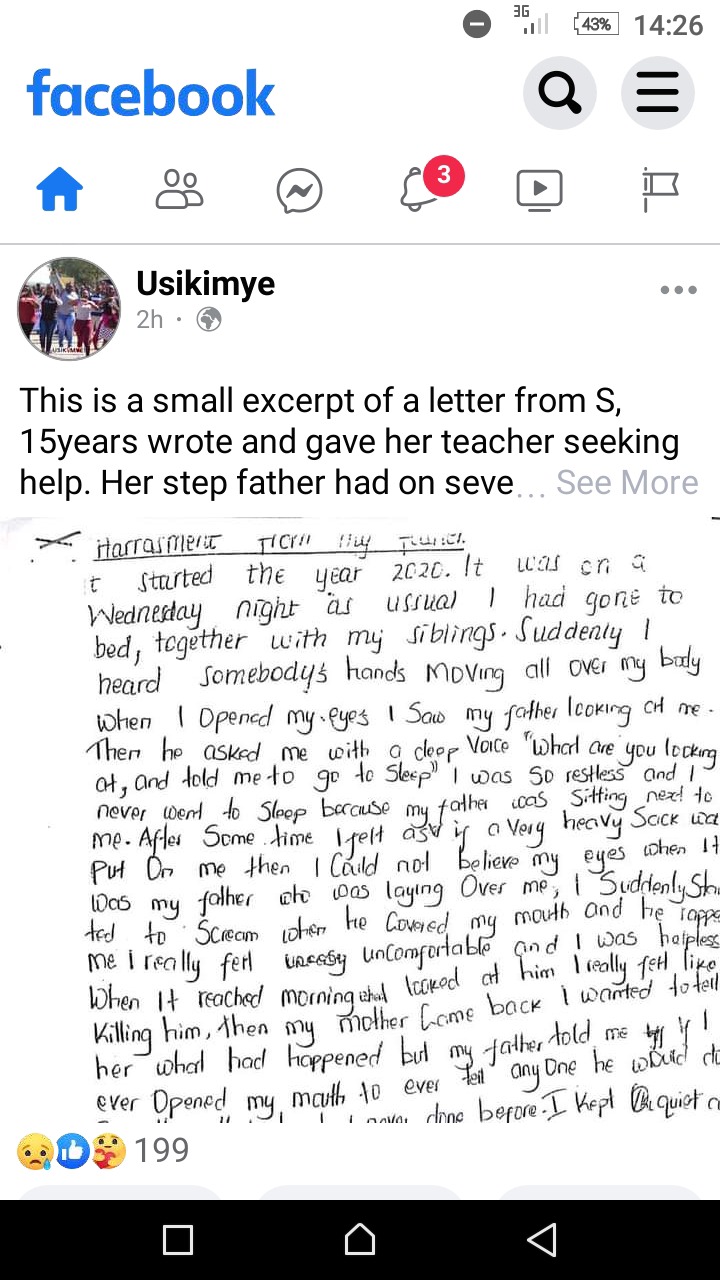 3G
43%
14:26
facebook
3
Usikimye
2h ·
This is a small excerpt of a letter from S,
15years wrote and gave her teacher seeking
help. Her step father had on seve... See More
Harrasment From My
t started the year 2020. It was on a
Wednesday night as ussual I had gone to
bed, together with my siblings. Suddenly I
heard somebody's hands moving all over my body
when I Opened my eyes I Saw my father looking at me.
Then he asked me with a deep Voice "What are you looking
at, and told me to go to Sleep" I was So restless and I
never went to Sleep because my father was Sitting next to
me. After Some time I felt as if a Very heavy Sack wa
Put On me then I Could not believe my eyes when It
Was my father who was laying Over me, I Suddenly Sta
ted to Scream when he Covered my mouth and he rappe
me I really felt uncomfortable and I was helpless
When It reached morning and looked at him I really felt like
Killing him, then my mother Came back I wanted to tell
her what had happened but my father told me if I
ever Opened my mouth to ever tell anyOne he would do
never done before. I Kept quiet a
199